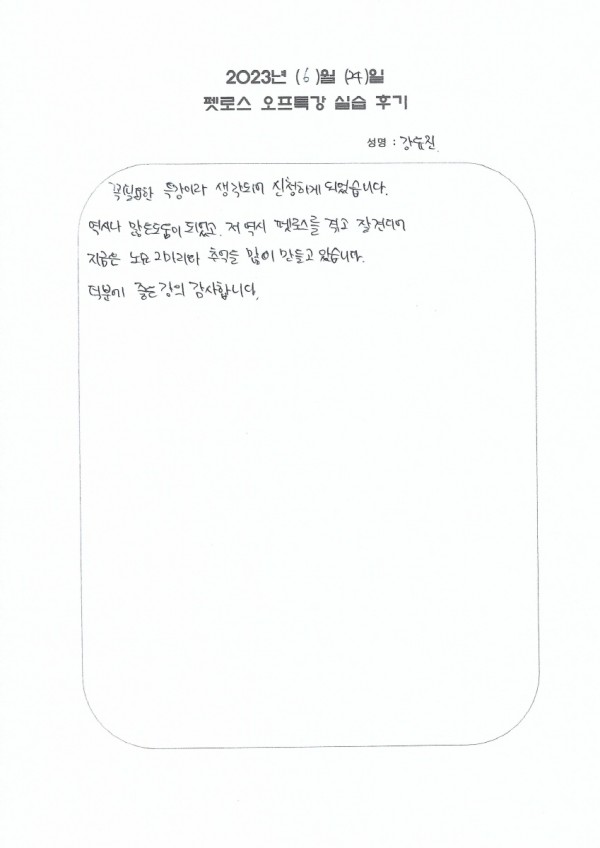 2023년 (6)월 (24)일
펫로스 오프특강 실습 후기
성명 : 강유진
꼭 필요한 특강이라 생각되어 신청하게 되었습니다.
역시나 많은도움이 되었고. 저 역시 펫로스를 겪고 잘견디며
지금은 노묘 2마리와 추억을 많이 만들고 있습니다.
덕분에 좋은강의 감사합니다.